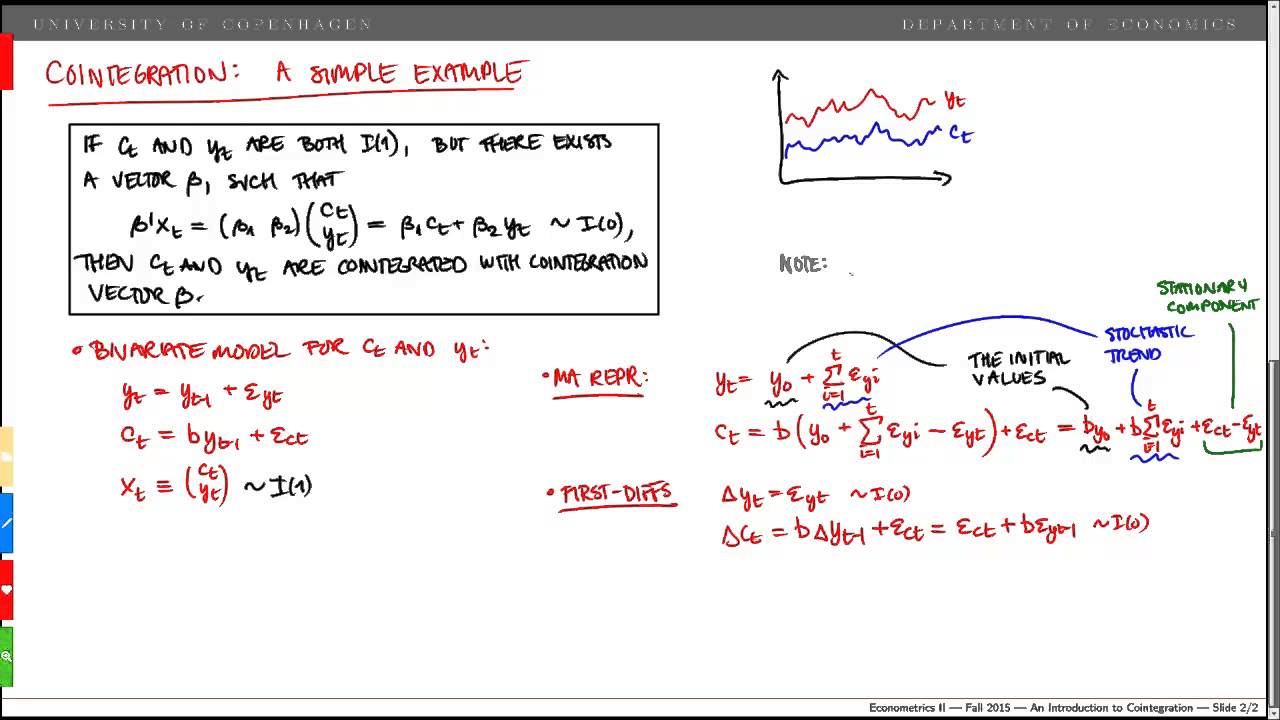 UNIVERSITY OF COPENHAGEN
DEPARTMENT OF ECONOMICS
COINTEGRATION: A SIMPLE EXAMPLE
IF Ct AND yt ARE BOTH I(1), BUT THERE EXISTS
A VECTOR β, SUCH THAT
β'Xt = (β1 β2)(Ct yt) = β1Ct + β2yt ~ I(0),
THEN Ct AND yt ARE COINTEGRATED WITH COINTEGRATION
VECTOR β.
yt
Ct
NOTE:
• BIVARIATE MODEL FOR Ct AND yt:
yt = yt-1 + εyt
Ct = byt-1 + εct
Xt ≡ (Ct yt) ~ I(1)
STATIONARY
COMPONENT
STOCHASTIC
TREND
THE INITIAL
VALUES
• MA REPR:
yt = y0 + Σ_{i=1}^{t} εyi
Ct = b(y0 + Σ_{i=1}^{t} εyi − εyt) + εct = by0 + bΣ_{i=1}^{t} εyi + εct − εyt
• FIRST-DIFFS
Δyt = εyt ~ I(0)
ΔCt = bΔyt-1 + εct = εct + bεyt-1 ~ I(0)
Econometrics II — Fall 2015 — An Introduction to Cointegration — Slide 2/2